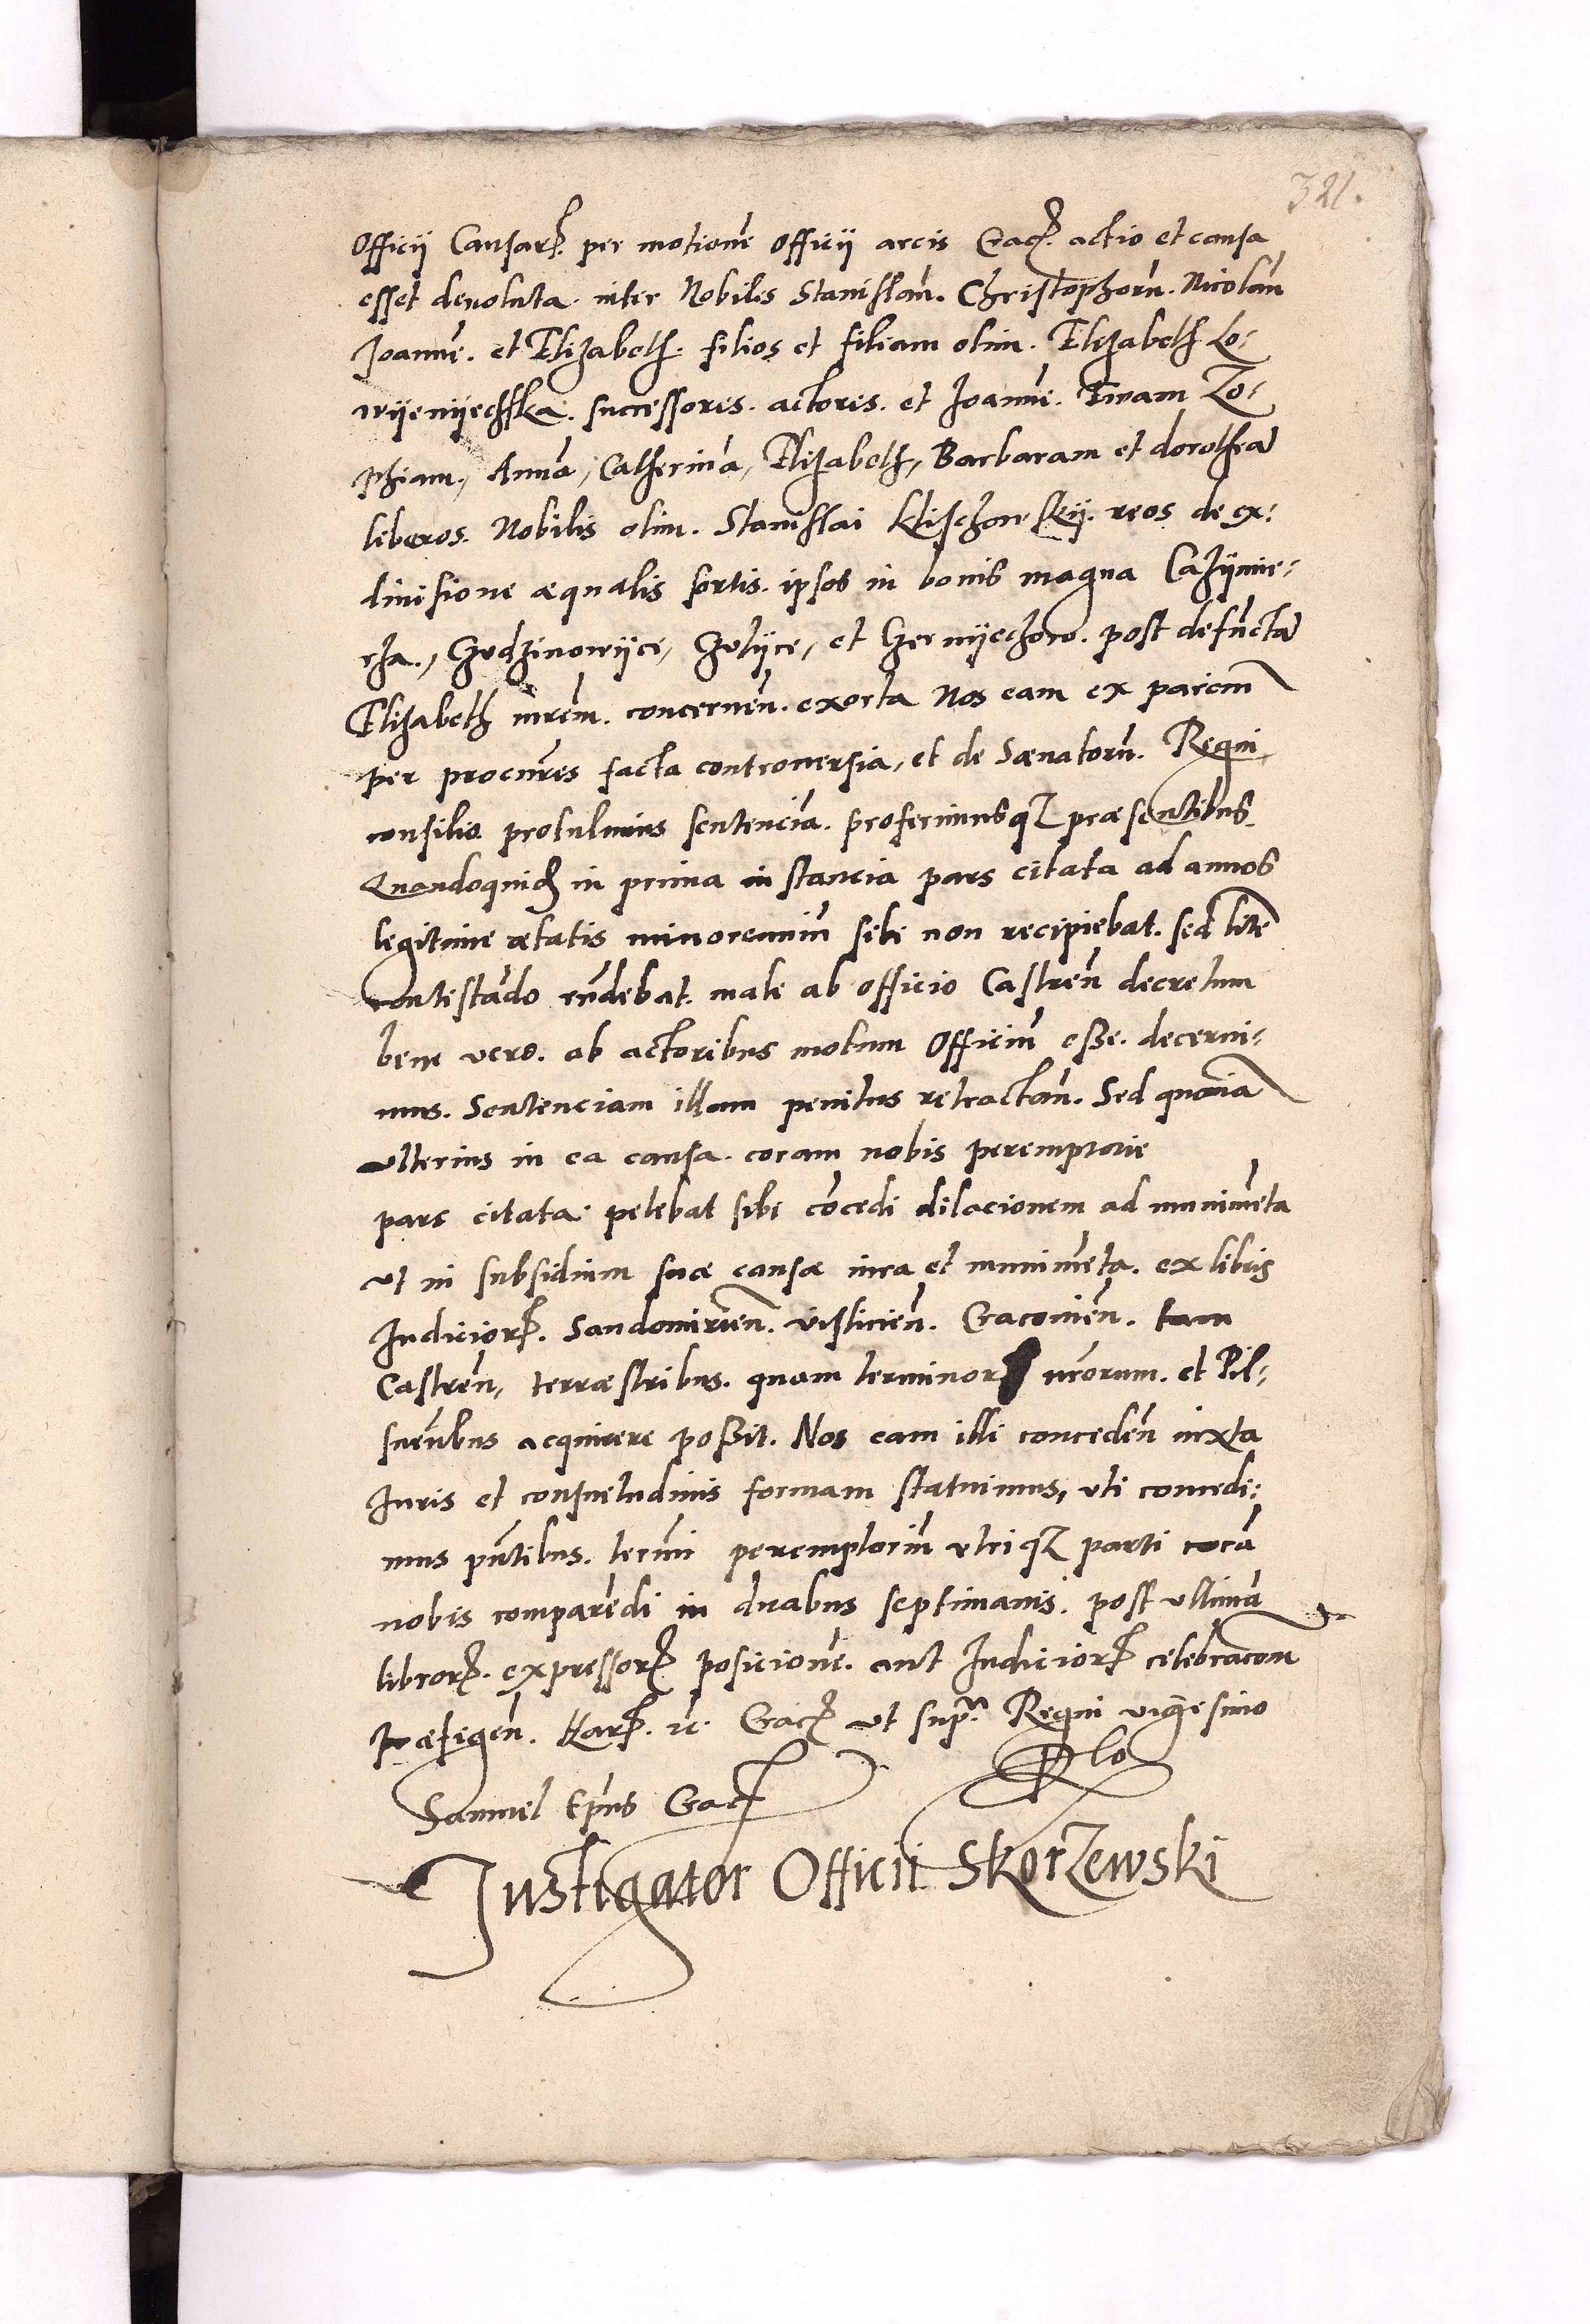 321.
Officij Causarꝝ per motionē officij arcis Cracꝭ. actio et causa
esset deuoluta inter Nobiles Stanislaū. Christophorū. Nicolaū
Joannē. et Elizabeth. filios et filiam olim. Elizabeth Lo-
wyenyechska. successores. actores. et Joannē. Ewam Zo-
phiam, Annā, Catherinā, Elizabeth, Barbaram et dorotheā
liberos. Nobilis olim. Stanislai Klischowskij. reos de ex-
diuisione æqualis sortis. ipsos in bonis magna Cazymie-
rza, Gudzinowyce, Golyce, et Czernyechow. post defunctā
Elizabeth mrēm. concernēn. exorta Nos eam ex parciū
per procūres facta controuersia, et de Sænatorū. Regni
consilio protulimus sentenciā. proferimusqȝ præsentibus
Quandoquidē in prima instancia pars citata ad annos
legitime ætatis minorennium sibi non recipiebat. sed litē
contestādo rn̄debat. male ab officio Castrēn decretum
bene vero. ab actoribus motum Officiū esse. decerni-
mus. Sentenciam illam penitus retractan̄. Sed quoniā
vlterius in ea causa. coram nobis peremptorie
pars citata petebat sibi cōcedi dilacionem ad munimēta
vt in subsidium suæ causæ iura et munimēta. ex libris
Judiciorꝝ. Sandomirien̄. vislicien̄. Cracouien̄. tam
Castrēn, terræstribus. quam terminorꝝ nr̄orum. et Pil-
snēn̄bus acquirere possit. Nos eam illi conceden̄ iuxta
Juris et consuetudinis formam statuimus, vti concedi-
mus pn̄tibus. termī peremptoriū vtriqȝ parti corā
nobis comparēdi in duabus septimanis. post vltimā
librorꝝ. expressorꝝ posicionē. aut Judiciorꝝ celebracōm
præfigen̄. Harꝝ. &c. Cracꝭ vt supra Regni vigesimo
Samuel Epūs Cracꝭ
Instigator Officii Skorzewski